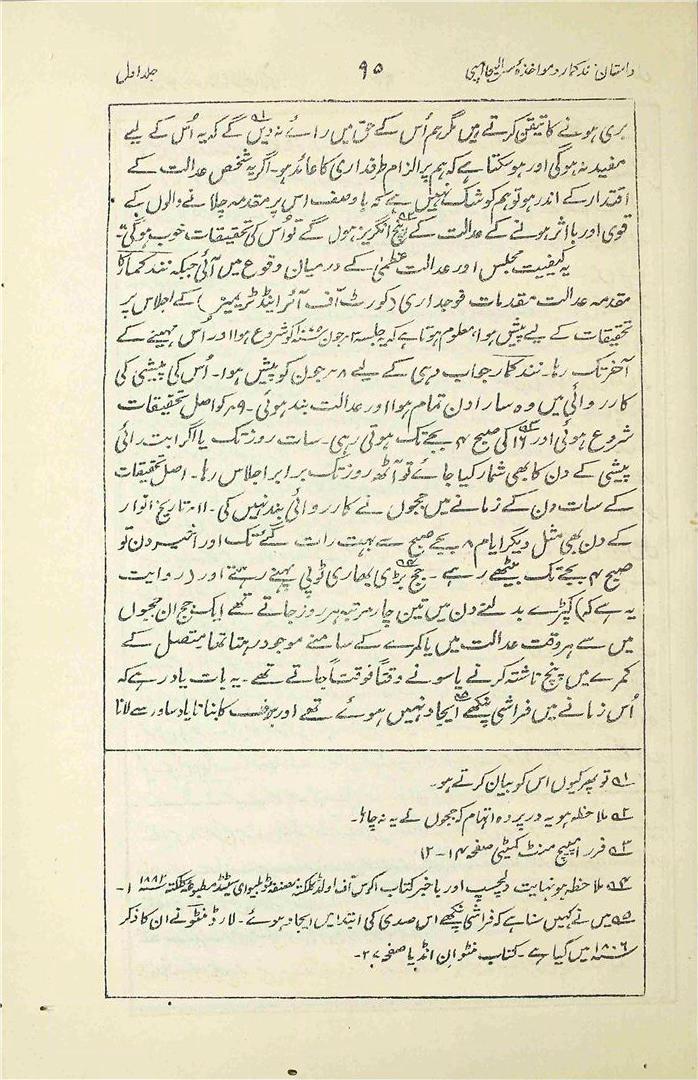 داستان نندکمار و مواخذۂ سر الیجا امپی ۹۵ جلد اول
بری ہونے کا تیقن کرتے ہیں مگر ہم اُس کے حق میں رائے نہ دیں ؎۱ گے کہ یہ اُس کے لیے
مفید نہ ہوگی اور ہو سکتا ہے کہ ہم پر الزام طرفداری کا عائد ہو۔ اگر یہ شخص عدالت کے
اقتدار کے اندر ہو تو ہم کو شک نہیں ہے کہ باوصف اس پر مقدمہ چلانے والوں کے
قوی اور بااثر ہونے کے عدالت کے جج ؎۲ انگریز ہوں گے تو اُس کی تحقیقات خوب ہوگی۔
یہ کیفیت مجلس اور عدالت عظمیٰ کے درمیان وقوع میں آئی جبکہ نندکمار کا
مقدمہ عدالت مقدمات فوجداری (کورٹ آف آئر اینڈ ٹریمینر) کے اجلاس پر
تحقیقات کے لیے پیش ہوا، معلوم ہوتا ہے کہ جلسہ ۳؍جون ۱۷۷۵ء کو شروع ہوا اور اس مہینے کے
آخر تک رہا۔ نندکمار جواب دہی کے لیے ۸؍جون کو پیش ہوا۔ اُس کی پیشی کی
کارروائی میں وہ سارا دن تمام ہوا اور عدالت بند ہوئی۔ ۹؍کو اصل تحقیقات
شروع ہوئی اور ۱۶ ؎۳ کی صبح ۴ بجے تک ہوتی رہی۔ سات روز تک یا اگر ابتدائی
پیشی کے دن کا بھی شمار کیا جائے تو آٹھ روز تک برابر اجلاس رہا۔ اصل تحقیقات
کے سات دن کے زمانے میں ججوں نے کارروائی بند نہیں کی۔ ۱۱؍تاریخ اتوار
کے دن بھی مثل دیگر ایام ۸ بجے صبح سے بہت رات گئے تک اور اخیر دن تو
صبح ۴ بجے تک بیٹھے رہے۔ جج بڑی ؎۴ بھاری ٹوپی پہنے رہتے اور (روایت
یہ ہے کہ) کپڑے بدلنے دن میں تین چار مرتبہ ہر روز جاتے تھے ایک جج ان ججوں
میں سے ہر وقت عدالت میں یا کمرے کے سامنے موجود رہتا تھا متصل کے
کمرے میں پنچ ناشتہ کرنے یا سونے وقتاً فوقتاً جاتے تھے۔ یہ بات یاد رہے کہ
اُس زمانے میں فراشی پنکھے ؎۵ ایجاد نہیں ہوئے تھے اور برف کا بنانا یا دساور سے لانا
؎۱ تو پھر کیوں اس کو بیان کرتے ہو۔
؎۲ ملاحظہ ہو یہ در پردہ اتہام کہ ججوں نے یہ نہ چاہا۔
؎۳ فرر امپیچ منٹ کمیٹی صفحہ ۱۴-۱۲
؎۴ ملاحظہ ہو نہایت دلچسپ اور باخبر کتاب اکوس آف اولڈ کلکتہ مصنفہ ڈبلیو ای سیٹڈ مطبوعہ کلکتہ ۱۸۸۲ء۔
؎۵ میں نے کہیں سنا ہے کہ فراشی پنکھے اس صدی کی ابتدا میں ایجاد ہوئے۔ لارڈ منٹو نے ان کا ذکر
۱۸۰۶ء میں کیا ہے۔ کتاب منٹو ان انڈیا صفحہ ۲۷۔